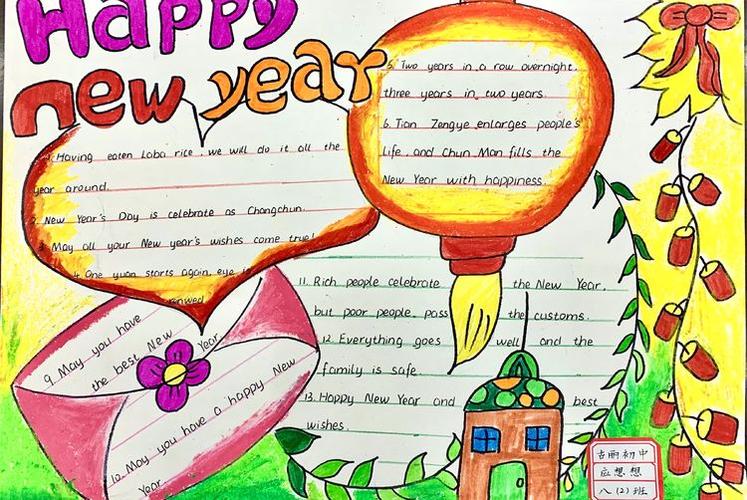 Happy
new year
1. Having eaten Laba rice, we will do it all the
year around.
2. New Year's Day is celebrate as Changchun.
3. May all your New year's wishes come true!
4. One yuan starts again, eye is
renwed
5. Two years in a row overnight,
three years in two years.
6. Tian Zengye enlarges people's
Life, and Chun Man fills the
New Year with happiness.
9. May you have
the best New
Year.
10. May you have a happy New
Year.
11. Rich people celebrate the New Year,
but poor people pass the customs.
12. Everything goes well and the
family is safe.
13. Happy New Year and best
wishes.
古丽初中
应想想
八(2)班